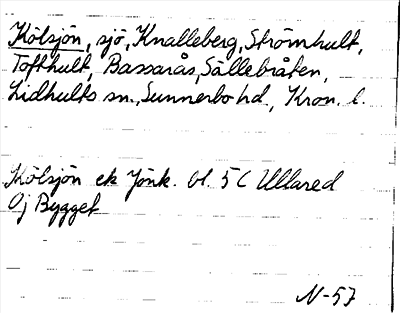 Kölsjön, sjö, Knalleberg, Strömhult,
Tofthult, Bassarås, Sällebråten,
Lidhults sn., Sunnerbo hd, Kron. l.
Kölsjön ek Jönk. bl. 5 C Ullared
Oj Bygget
N-57